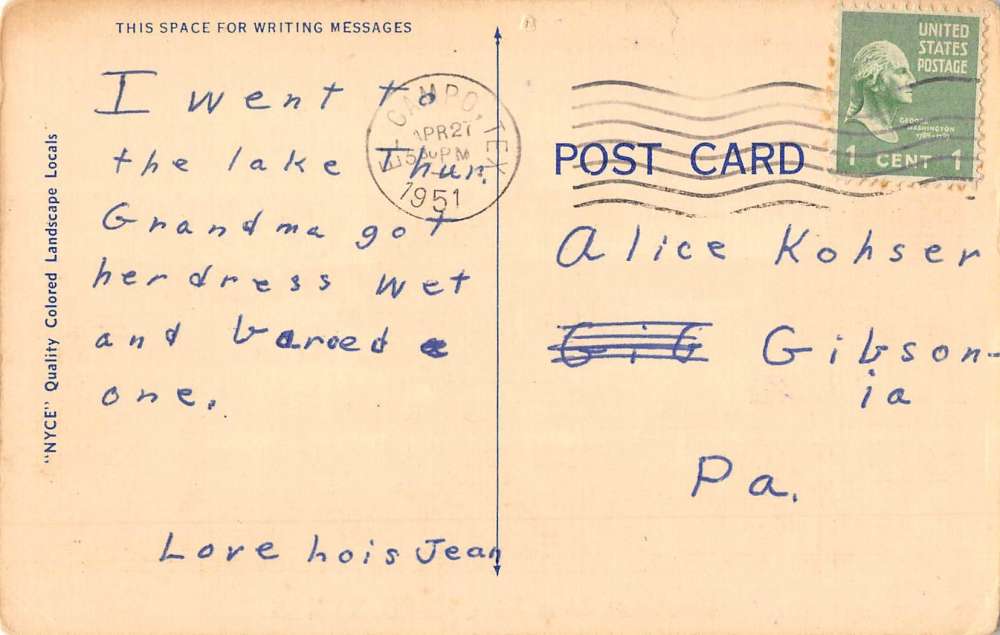 THIS SPACE FOR WRITING MESSAGES
I went to
the lake Thur.
Grandma got
her dress wet
and baroed a
one.
Love Lois Jean
"NYCE" Quality Colored Landscape Locals
EL CAMPO, TEX
APR 27
5 PM
1951
UNITED
STATES
POSTAGE
GEORGE
WASHINGTON
1 CENT 1
POST CARD
Alice Kohser
GiG Gibson-
ia
Pa.